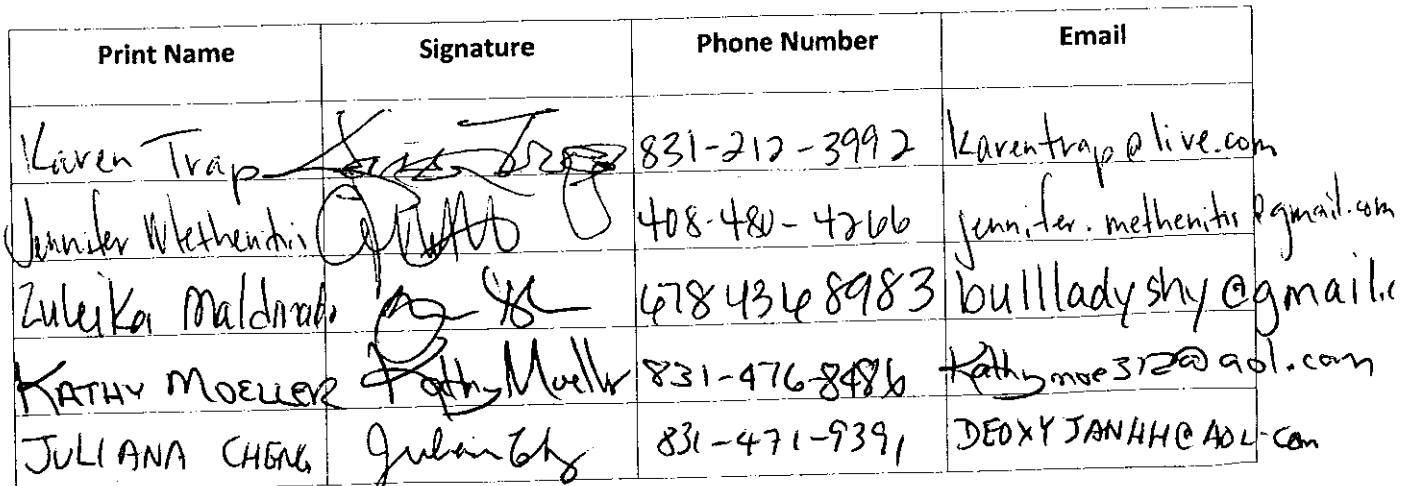 Print Name Signature Phone Number Email
Karen Trap Karen Trap 831-212-3992 karentrap@live.com
Jennifer Methenitis 408-480-4266 jennifer.methenitis@gmail.com
Zuleika Maldonado 678 436 8983 bullladyshy@gmail.c
KATHY MOELLER Kathy Moeller 831-476-8486 Kathymoe312@aol.com
JULIANA CHENG 831-471-9391 DEOXYJANHH@AOL.com